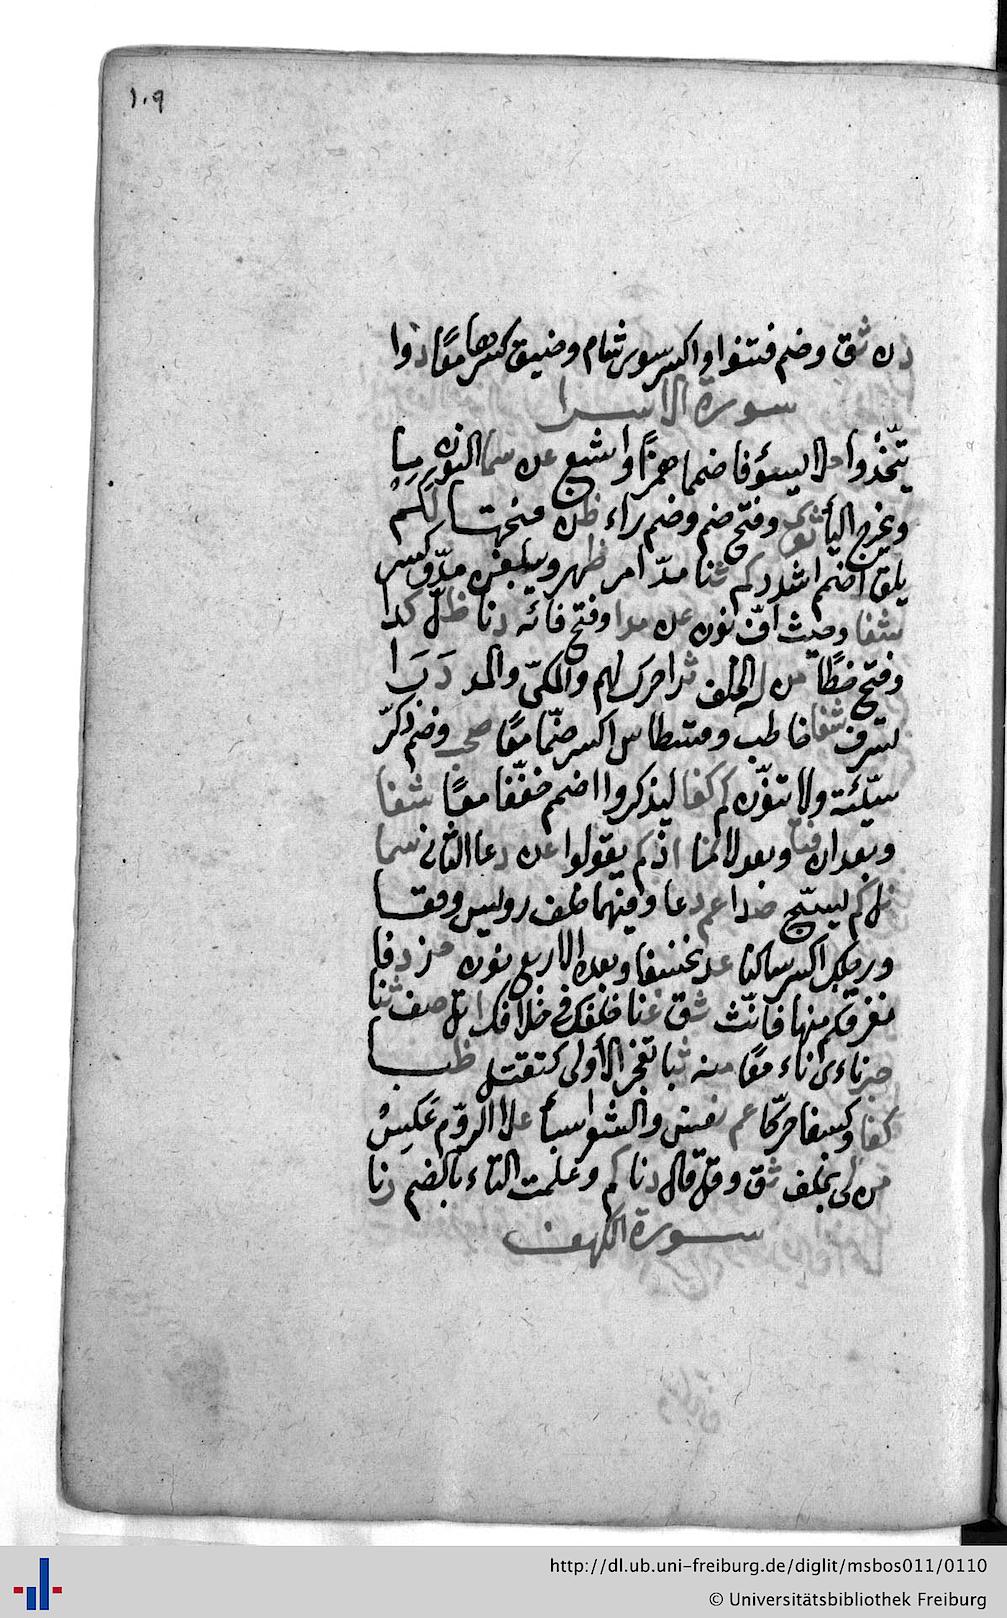 ١٠٩
دن ثق وضم فتنوا واكسر سوى شام وضيق كسرها معًا دوا
سورة الاسرا
يتّخذوا حلا يسؤفا ضما همزًا واشبع عن سما النون رسا
ويخرج اليا ثوى وفتح ضم وضم راء ظن فتحها لكم
يلقا اضم اشدد كم ثنا مدّ امر ظهر ويبلغن مدّ كسر
شفا وحيث افّ نون عن مدا وفتح فائه دنا ظل كدا
وفتح خطًا من له الخلف ثرا حرك لهم والمكيّ والمد دَرَا
يسرف شفا خاطب وقسطاس اكسر ضمّا معًا صحب وضم ذكّر
سيّئة ولا تنوّن كم كفا ليذكروا اضمم خفّفا معًا شفا
وبعد ان فتا وبعد لا لمنا اذ كم يقولوا عن دعا الثانى سما
نل كم يسبّح صدا عم دعا وفيهما خلف رويس وقفا
ورجلك اكسر ساكنا عد نخسفا وبعده الاربع نون حز دفا
نغرقكم منها فانّث ثق غنا خلفك فى خلافك اتل صف ثنا
حبر ناءى ناء معًا منه ثبا تفجر الأولى كتقتل ظبا
كفا وكسفا حرّكا عم نفس والشعرا سبأ علا الروّم عَكِسْ
من لى بخلف ثق وقل قال دنا كم وعلمت التاء بالضم رنا
سورة الكهف
http://dl.ub.uni-freiburg.de/diglit/msbos011/0110
© Universitätsbibliothek Freiburg